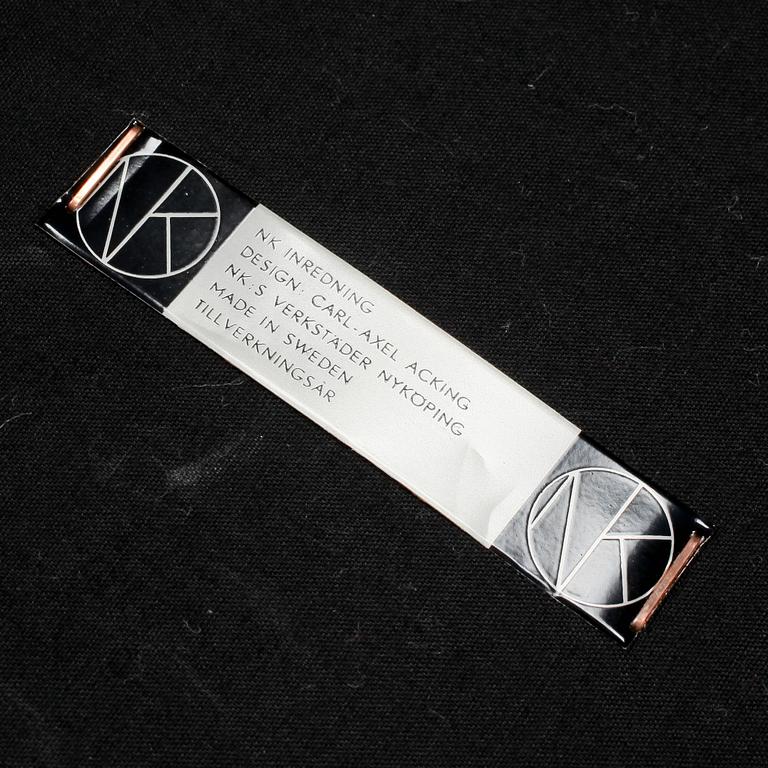 NK
NK INREDNING
DESIGN: CARL-AXEL ACKING
NK:S VERKSTÄDER NYKÖPING
MADE IN SWEDEN
TILLVERKNINGSÅR
NK